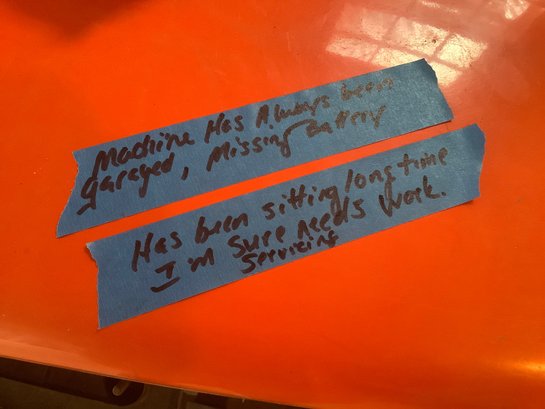 Machine Has Always been
garaged, Missing Battery
Has been sitting long time
I'm sure needs work.
Servicing